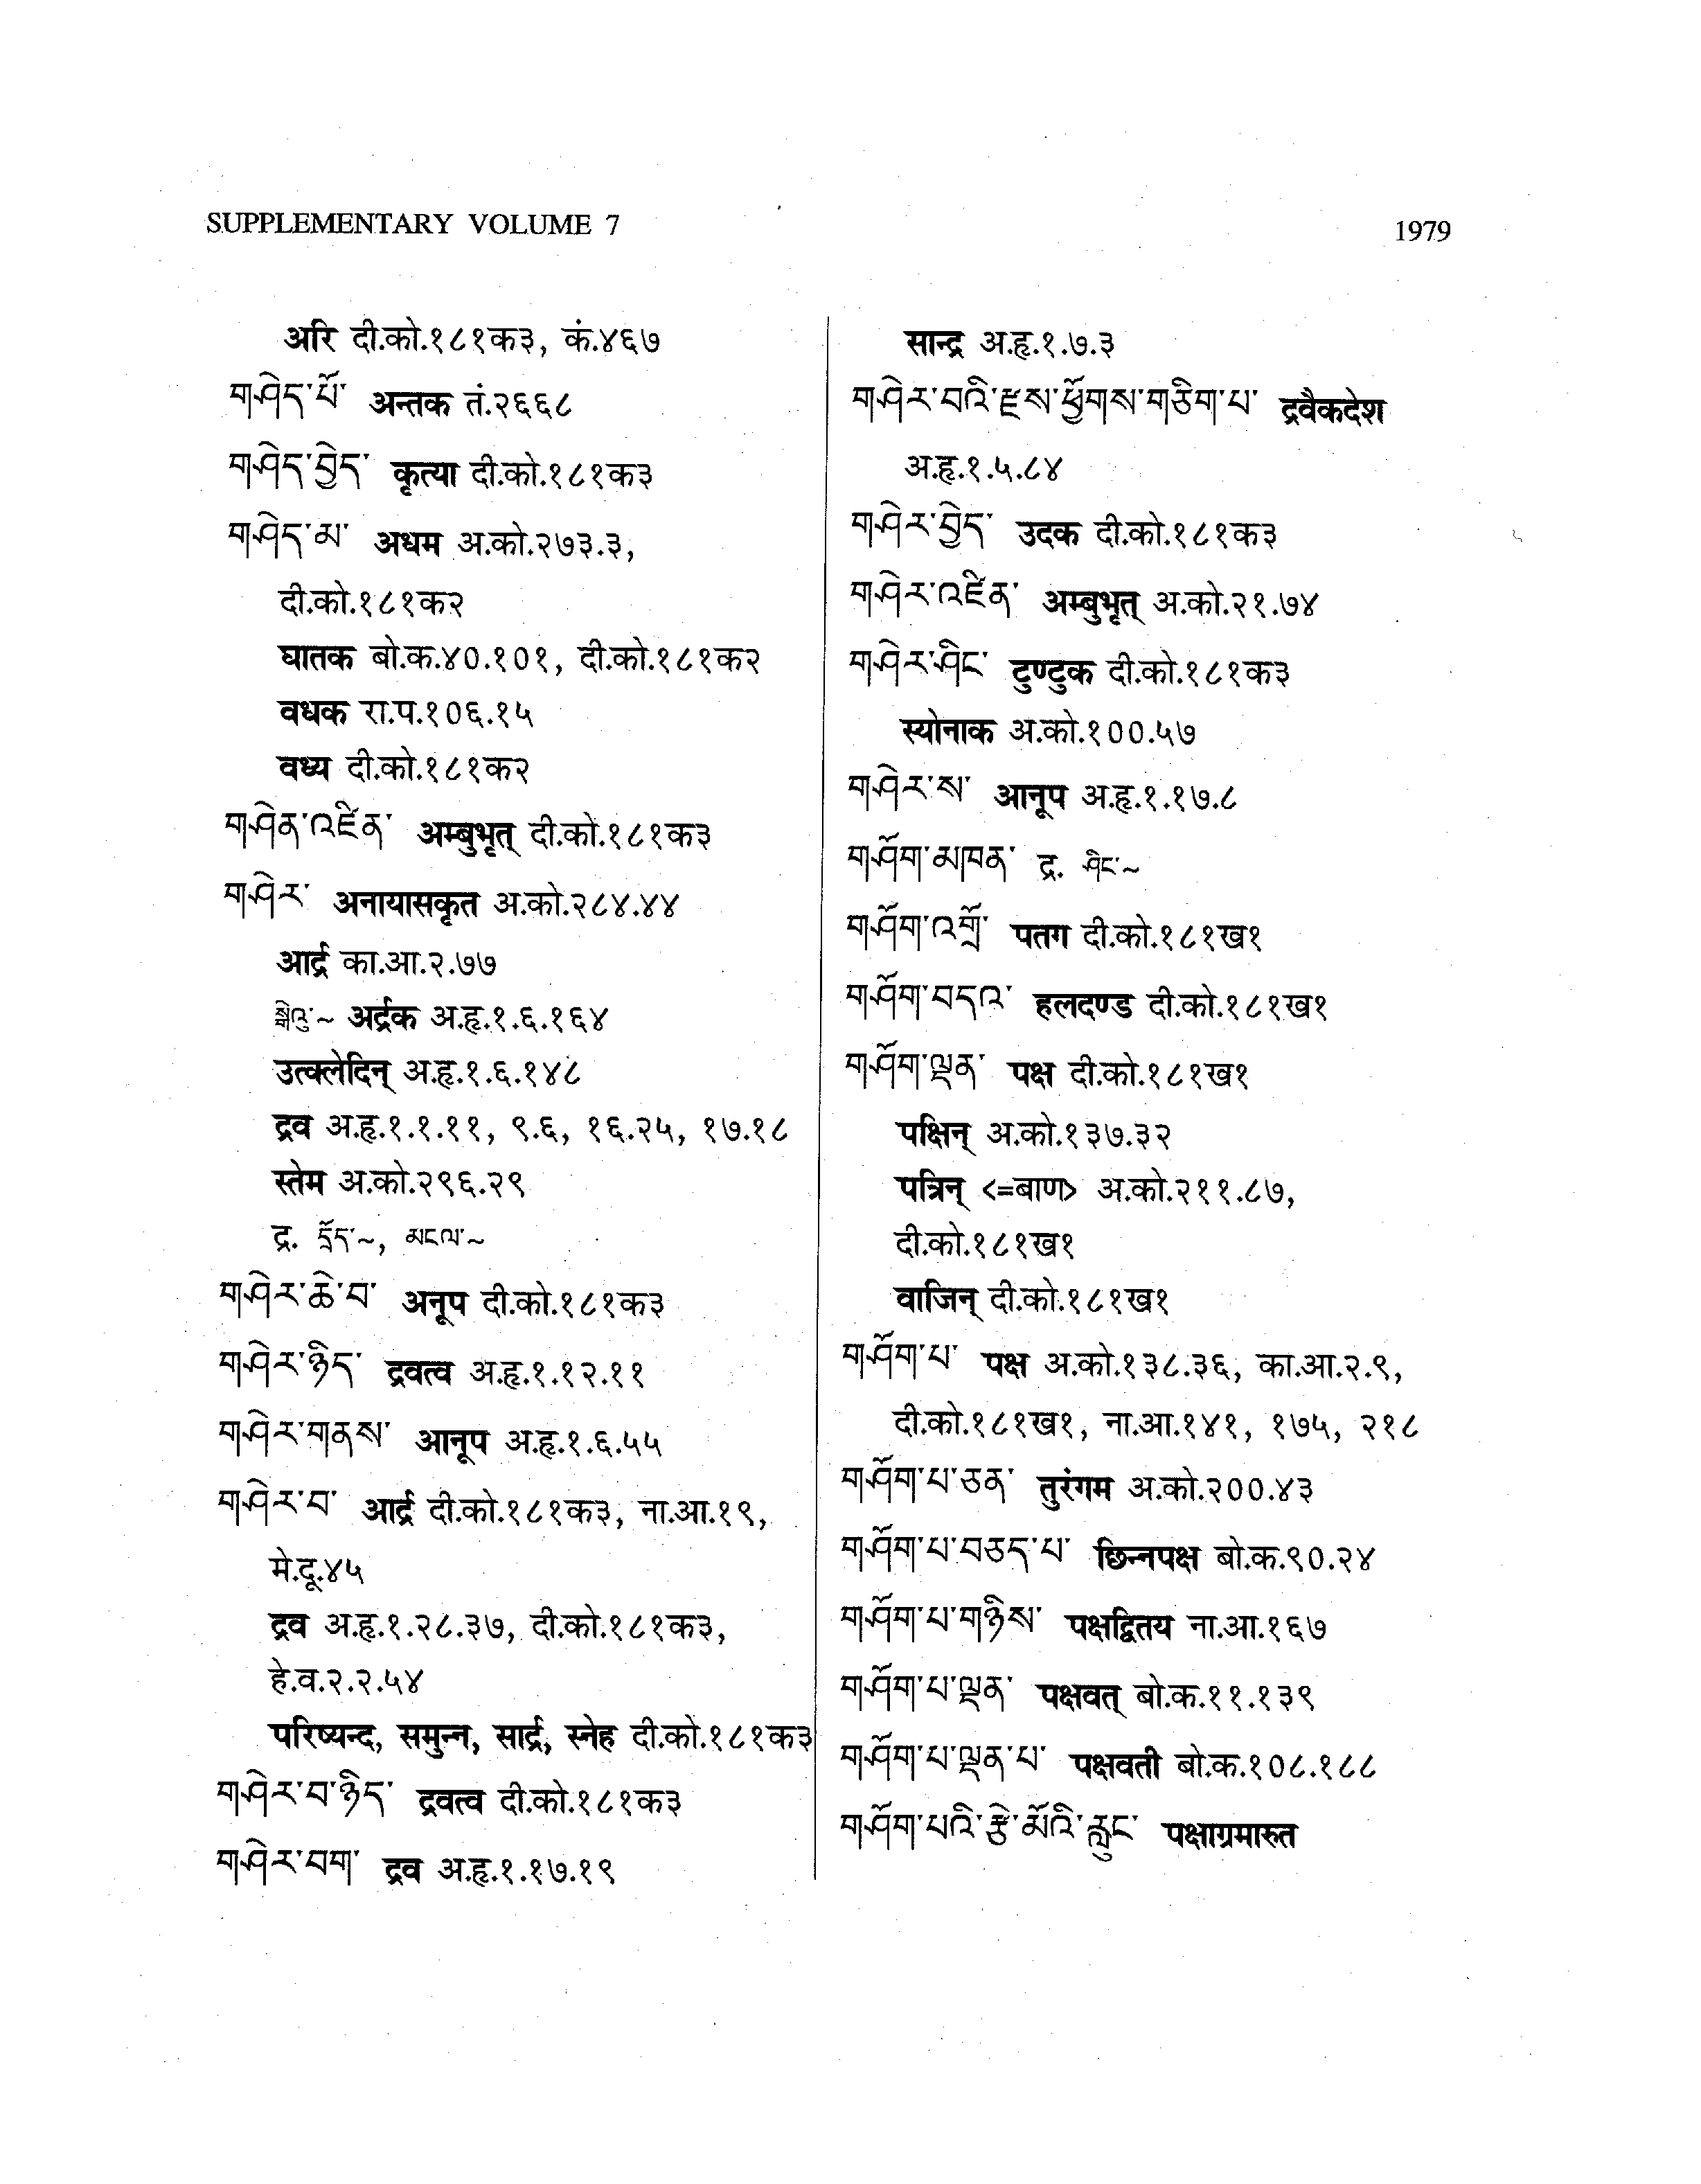 SUPPLEMENTARY VOLUME 7
1979
अरि दी.को.१८१क३, कं.४६७
གཤེད་པོ་ अन्तक तं.२६६८
གཤེད་བྱེད་ कृत्या दी.को.१८१क३
གཤེད་མ་ अधम अ.को.२७३.३,
दी.को.१८१क२
घातक बो.क.४०.१०१, दी.को.१८१क२
वधक रा.प.१०६.१५
वध्य दी.को.१८१क२
གཤེན་འཛིན་ अम्बुभृत् दी.को.१८१क३
གཤེར་ अनायासकृत अ.को.२८४.४४
आर्द्र का.आ.२.७७
སྒེའུ་~ अर्द्रक अ.हृ.१.६.१६४
उत्क्लेदिन् अ.हृ.१.६.१४८
द्रव अ.हृ.१.१.११, ९.६, १६.२५, १७.१८
स्तेम अ.को.२९६.२९
द्र. དྲོད་~, མངལ་~
གཤེར་ཆེ་བ་ अनूप दी.को.१८१क३
གཤེར་ཉིད་ द्रवत्व अ.हृ.१.१२.११
གཤེར་གནས་ आनूप अ.हृ.१.६.५५
གཤེར་བ་ आर्द्र दी.को.१८१क३, ना.आ.१९,
मे.दू.४५
द्रव अ.हृ.१.२८.३७, दी.को.१८१क३,
हे.व.२.२.५४
परिष्यन्द, समुन्न, सार्द्र, स्नेह दी.को.१८१क३
གཤེར་བ་ཉིད་ द्रवत्व दी.को.१८१क३
གཤེར་བག་ द्रव अ.हृ.१.१७.१९
सान्द्र अ.हृ.१.७.३
གཤེར་བའི་རྫས་ཕྱོགས་གཅིག་པ་ द्रवैकदेश
अ.हृ.१.५.८४
གཤེར་བྱེད་ उदक दी.को.१८१क३
གཤེར་འཛིན་ अम्बुभृत् अ.को.२१.७४
གཤེར་ཤིང་ टुण्टुक दी.को.१८१क३
स्योनाक अ.को.१००.५७
གཤེར་ས་ आनूप अ.हृ.१.१७.८
གཤོག་མཁན་ द्र. ཤིང་~
གཤོག་འགྲོ་ पतग दी.को.१८१ख१
གཤོག་བདའ་ हलदण्ड दी.को.१८१ख१
གཤོག་ལྡན་ पक्ष दी.को.१८१ख१
पक्षिन् अ.को.१३७.३२
पत्रिन् <=बाण> अ.को.२११.८७,
दी.को.१८१ख१
वाजिन् दी.को.१८१ख१
གཤོག་པ་ पक्ष अ.को.१३८.३६, का.आ.२.९,
दी.को.१८१ख१, ना.आ.१४१, १७५, २१८
གཤོག་པ་ཅན་ तुरंगम अ.को.२००.४३
གཤོག་པ་བཅད་པ་ छिन्नपक्ष बो.क.९०.२४
གཤོག་པ་གཉིས་ पक्षद्वितय ना.आ.१६७
གཤོག་པ་ལྡན་ पक्षवत् बो.क.११.१३९
གཤོག་པ་ལྡན་པ་ पक्षवती बो.क.१०८.१८८
གཤོག་པའི་རྩེ་མོའི་རླུང་ पक्षाग्रमारुत